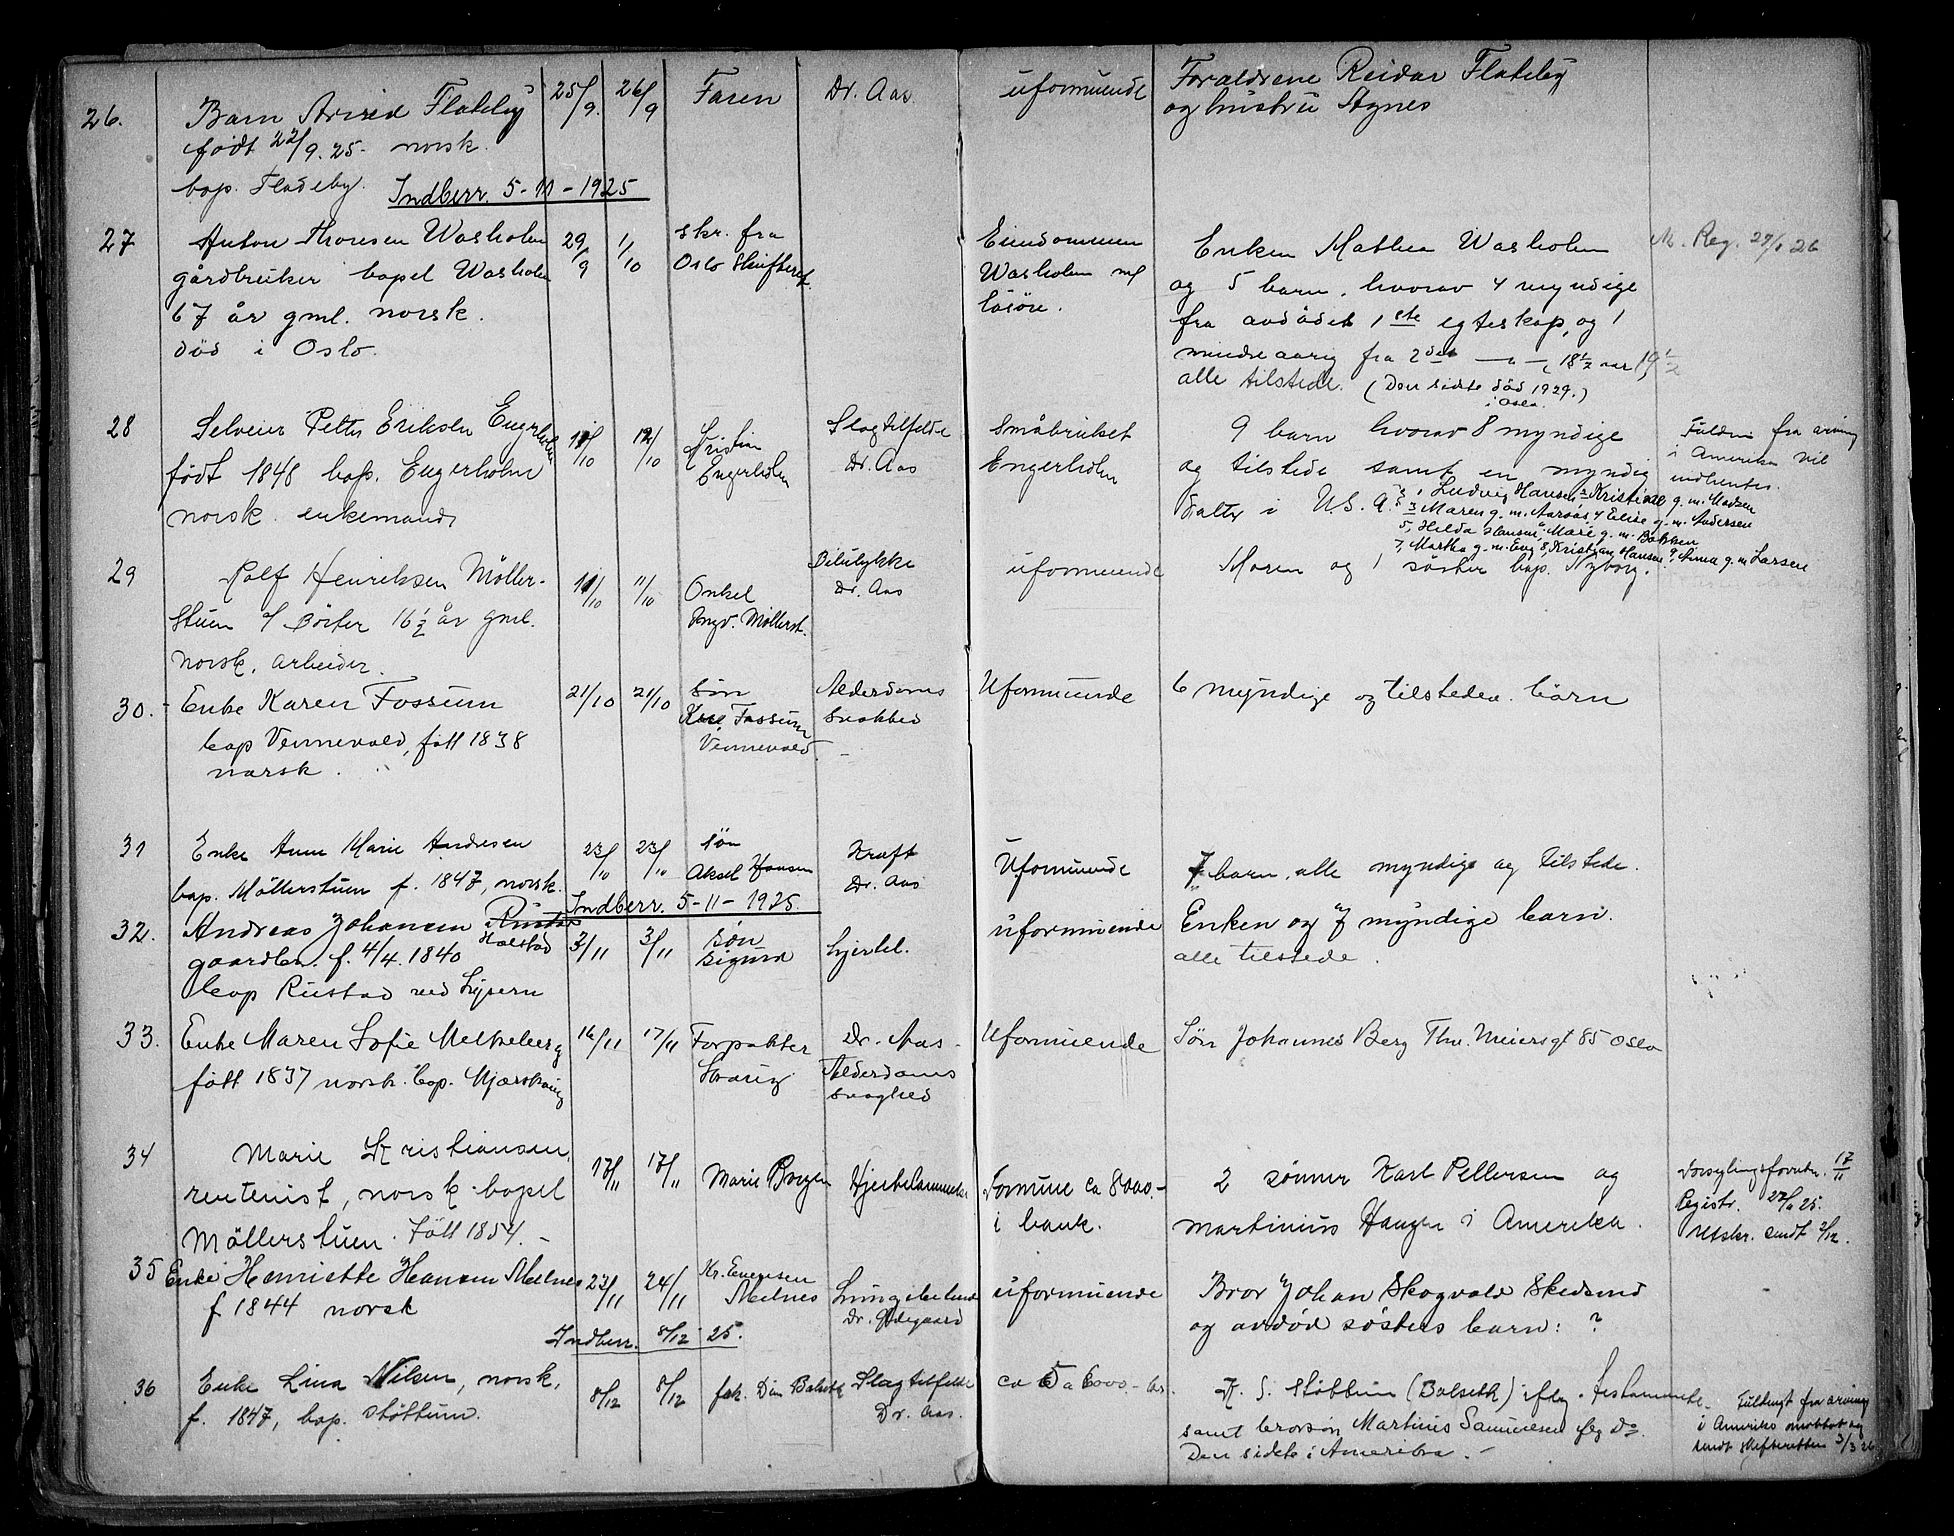 26. Barn Arvid Flateby 25/9. 26/9 Faren Dr. Aas uformuende Foraldrene Reidar Flateby
født 22/9. 25 - norsk. og hustru Agnes
bop. Fladeby.
Indberr. 5-11-1925
27 Anton Thoresen Washolm 29/9 1/10 skr. fra Eiendommen Enken Mathea Washolm M. Reg. 27/1 26
gårdbruker bopel Washolm Oslo Skifteret. Washolm m/ og 5 barn, hvorav 4 myndige
67 år gml. norsk. løsøre. fra avdødes 1ste egteskap, og 1
død i Oslo. mindreaarig fra 2det — " —, 18 1/2 aar, 19 1/2
alle tilstede. (Den sidste død 1929.)
i Oslo.
28 Selveier Petter Eriksen Engerholm 11/10 12/10 Kristian Slagtilfelde Småbruket 9 barn hvorav 8 myndige Fuldm fra arving
født 1848 bop. Engerholm Engerholm Dr. Aas Engerholm og tilstede samt en myndig i Amerika vil
norsk. enkemand datter i U.S.A. indhentes.
1 Ludvig Hansen 2 Kristine g.m. Madsen
3 Maren g.m. Aarsås 4 Elise g.m. Andersen
5, Hilda Hansen 6 Marie g.m. Bakken
7, Martha g.m. Eng 8, Kristian Hansen 9, Anna g.m. Larsen
29 Rolf Henriksen Möller- 11/10 11/10 Onkel Bilulykke uformuende Moren og 1 søster bop. Nyborg.
stuen i/ Börter 16 1/2 år gml. Yngv. Möllerst. Dr. Aas
norsk, arbeider.
30. - Enke Karen Fossum 21/10 21/10 Søn Alderdoms Uformuende 6 myndige og tilstedev. börn
bop Vennevold, født 1838 Fossum svakhed
norsk. Vennevold.
31 Enke Anne Marie Andresen 23/10 23/10 søn Kræft Uformuende 7 barn, alle myndige og tilstede.
bop. Möllerstuen f. 1847, norsk. Aksel Hansen Dr. Aas
Indberr. 5-11-1925.
32. Andreas Johansen Rustad 3/11 3/11 søn hjertel. uformuende Enken og 7 myndige barn.
Halstad
gaardbr. f. 4/4. 1840 Sigurd alle tilstede.
bop Rustad ved Lysern
33. Enke Maren Sofie Melkeberg 16/11 17/11 Forpakter Dr. Aas - Uformuende Søn Johannes Berg Thv. Meiersgt 85 Oslo
født 1837 norsk. bop. Mjærskaug Alderdoms
svaghed
34 Marie Kristiansen, 17/11 17/11 Marie Borgen Hjertelammelse Formue ca 8000.- 2 sønner Karl Pettersen og Forseglingsforretn. 17/11
rentenist, norsk bopel i bank. Martinius Haugen i Amerika. Registr. 27/11 25.
Möllerstuen. Født 1854. - Utskr. sendt 2/12.
35 Enke Henriette Hansen Melnes 23/11 24/11 Kr. Evensen Lungebetend uformuende Bror Johan Skogvold Skedsmo
f 1844 norsk Melnes Dr. Ødegaard og avdød søsters barn: ?
Indberr. 8/12 25.
36 Enke Lina Nilsen, norsk, 8/12 8/12 frk. Balseth Slagtilfelde ca 5 a 6000.- kr. H. S. Støttum (Balseth) iflg. testamente Fuldmgt fra arving
f. 1847, bop. Støttum. Dr. Aas. samt brorsøn Martinus Samuelsen flg do. i Amerika mottat og
Den sidste i Amerika. - sendt skifteretten 3/3 26